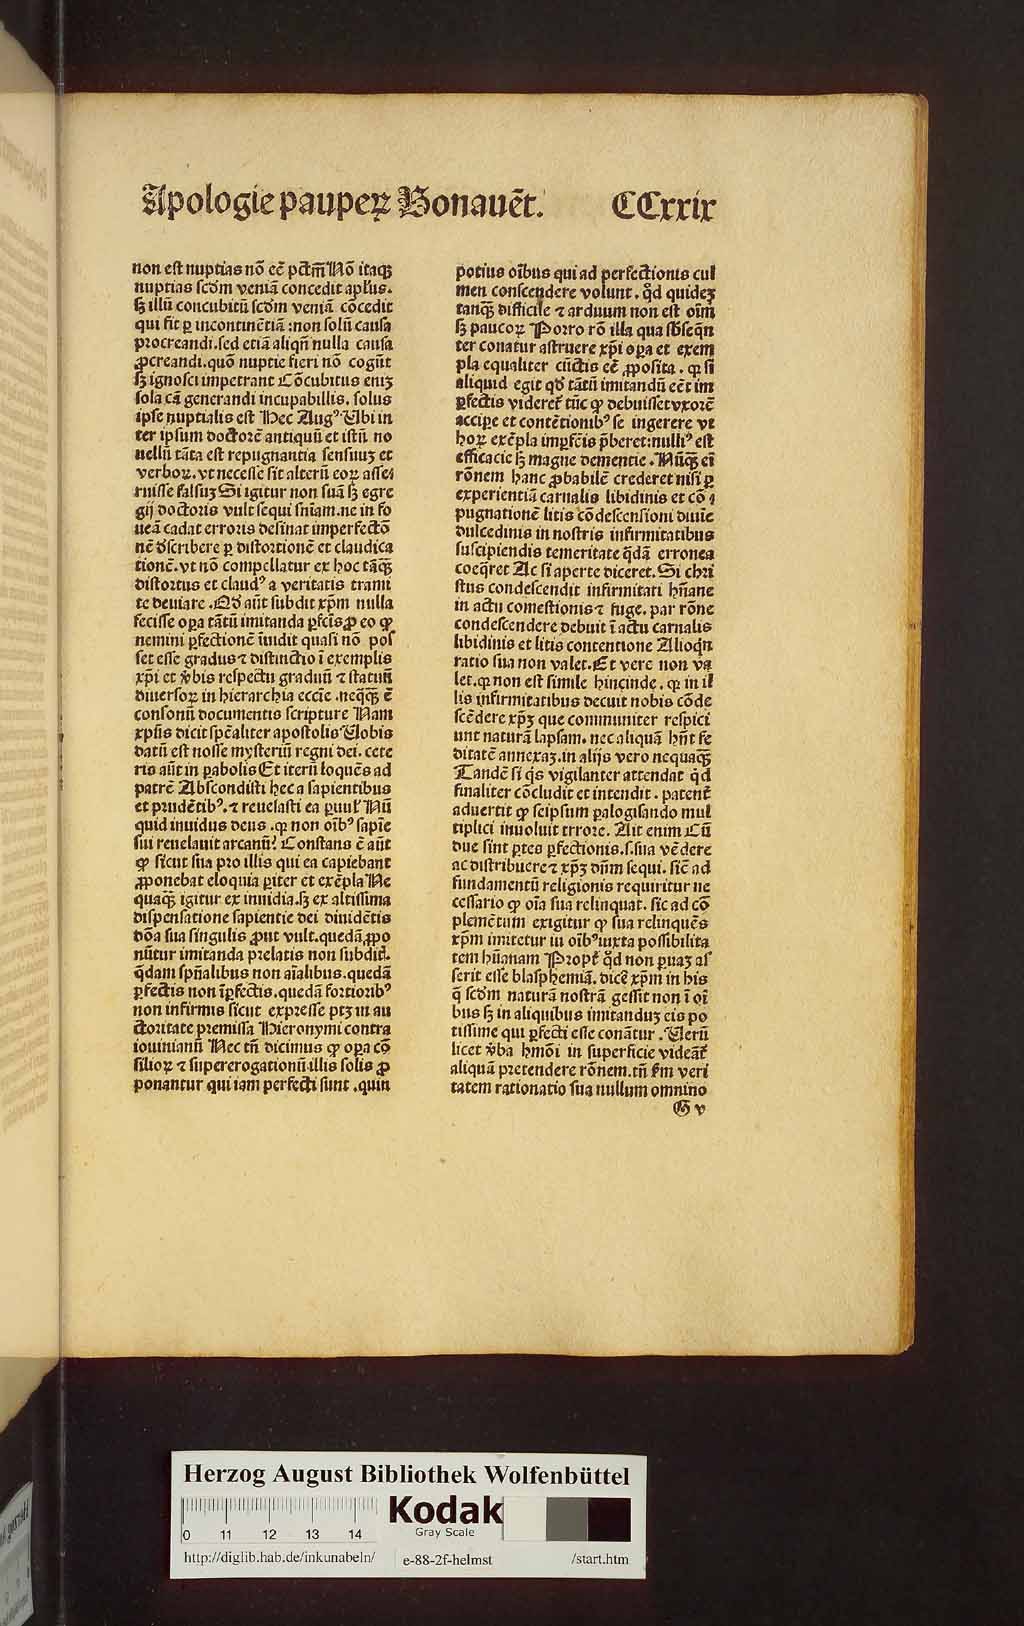 Apologie pauperꝝ Bonauēt. CCxxix
non est nuptias nō eē pctm̄ Nō itaqꝫ
nuptias scd̄m veniā concedit apl̄us.
sꝫ illū concubitū scd̄m veniā cōcedit
qui fit ꝑ incontinētiā :non solū causa
procreandi.sed etiā aliqn̄ nulla causa
ꝓcreandi.quō nuptie fieri nō cogūt
sꝫ ignosci impetrant Cōcubitus eniꝫ
sola cā generandi incupabillis. solus
ipse nuptialis est Hec Augꝰ Ubi in
ter ipsum doctorē antiquū et istū no
uellū tāta est repugnantia sensuuꝫ et
verboꝝ.vt necesse sit alterū eoꝝ asse⸗
ruisse falsuꝫ Si igitur non suā sꝫ egre
gij doctoris vult sequi sn̄iam.ne in fo
ueā cadat erroris desinat imperfectō
nē dscribere ꝑ distortionē et claudica
tionē.vt nō compellatur ex hoc tāqꝫ
distortus et claudꝰ a veritatis trami
te deuiare .Qd̄ aūt subdit xp̄m nulla
fecisse oꝑa tātū imitanda ꝑfcīs ꝓ eo ꝙ
nemini ꝑfectionē īuidit quasi nō pos
set esse gradus ⁊ distinctio ī exemplis
xp̄i et v̄bis respectu graduū ⁊ statuū
diuersoꝝ in hierarchia eccīe .neqꝫ ē
consonū documentis scripture Nam
xpūs dicit spēaliter apostolis Uobis
datū est nosse mysteriū regni dei. cete
ris aūt in ꝑabolis Et iterū loquēs ad
patrē Abscondisti hec a sapientibus
et prudētibꝰ.⁊ reuelasti ea ꝑuul̄ Nū
quid inuidus deus .qꝛ non oībꝰ sapīe
sui reuelauit arcanū? Constans ē aūt
ꝙ sicut sua pro illis qui ea capiebant
ꝓponebat eloquia ꝑiter et exēpla Ne
quaqꝫ igitur ex inuidia.sꝫ ex altissima
dispensatione sapientie dei diuidētis
dōa sua singulis ꝓut vult.quedā ꝓpo
nūtur imitanda prelatis non subditꝭ.
q̄dam spn̄alibus non aīalibus.quedā
ꝑfectis non īꝑfectis.quedā fortioribꝰ
non infirmis sicut expresse ptꝫ in au
ctoritate premissa Hieronymi contra
iouinianū Nec tn̄ dicimus ꝙ oꝑa cō
silioꝝ ⁊ supererogationū illis solis ꝓ
ponantur qui iam perfecti sunt .quin
potius oībus qui ad perfectionis cul
men conscendere volunt . qd̄ quideꝫ
tanqꝫ difficile ⁊ arduum non est oīm
sꝫ paucoꝝ Porro rō illa qua sb̄seqn̄
ter conatur astruere xp̄i oꝑa et exem
pla equaliter cūctis eē ꝓposita . qꝛ si
aliquid egit qd̄ tātū imitandū eēt im
ꝑfectis videret̄ tūc ꝙ debuisset vxorē
accipe et contētionibꝰ se ingerere vt
hoꝝ exēpla impfcīs p̄beret:nulliꝰ est
efficacie sꝫ magne dementie .Nūqꝫ eī
rōnem hanc ꝓbabilē crederet nisi ꝑ
experientiā carnalis libidinis et cō⸗
pugnationē litis cōdescensioni diuīe
dulcedinis in nostris infirmitatibus
suscipiendis temeritate q̄dā erronea
coeq̄ret Ac si aperte diceret. Si chri
stus condescendit infirmitati hūane
in actu comestionis ⁊ fuge. par rōne
condescendere debuit ī actu carnalis
libidinis et litis contentione Alioqn̄
ratio sua non valet.Et vere non va
let.qꝛ non est simile hincinde. qꝛ in il
lis infirmitatibus decuit nobis cōde
scēdere xp̄ꝫ que communiter respici
unt naturā lapsam. nec aliquā hn̄t fe
ditatē annexaꝫ.in alijs vero nequaqꝫ
Tandē si q̄s vigilanter attendat qd̄
finaliter cōcludit et intendit . patent̄
aduertit ꝙ seipsum ꝑalogisando mul
tiplici inuoluit errore. Ait enim Cū
due sint ꝑtes ꝑfectionis.s.sua vēdere
ac distribuere ⁊ xp̄ꝫ dn̄m sequi. sicī ad
fundamentū religionis requiritur ne
cessario ꝙ oīa sua relinquat. sic ad cō
plemētum exigitur ꝙ sua relinquēs
xp̄m imitetur in oībꝰ iuxta possibilita
tem hūanam Propt̄ qd̄ non ꝑuaꝫ as
serit esse blasphemiā. dicē xp̄m in his
q̄ scd̄m naturā nostrā gessit non ī oī
bus sꝫ in aliquibus imitanduꝫ eis po
tissime qui ꝑfecti esse conātur . Uerū
licet v̄ba hmōi in superficie videāt̄
aliquā pretendere rōnem.tn̄ fm veri
tatem rationatio sua nullum omnino
G v
Herzog August Bibliothek Wolfenbüttel
Kodak
Gray Scale
0 11 12 13 14
http://diglib.hab.de/inkunabeln/ e-88-2f-helmst /start.htm